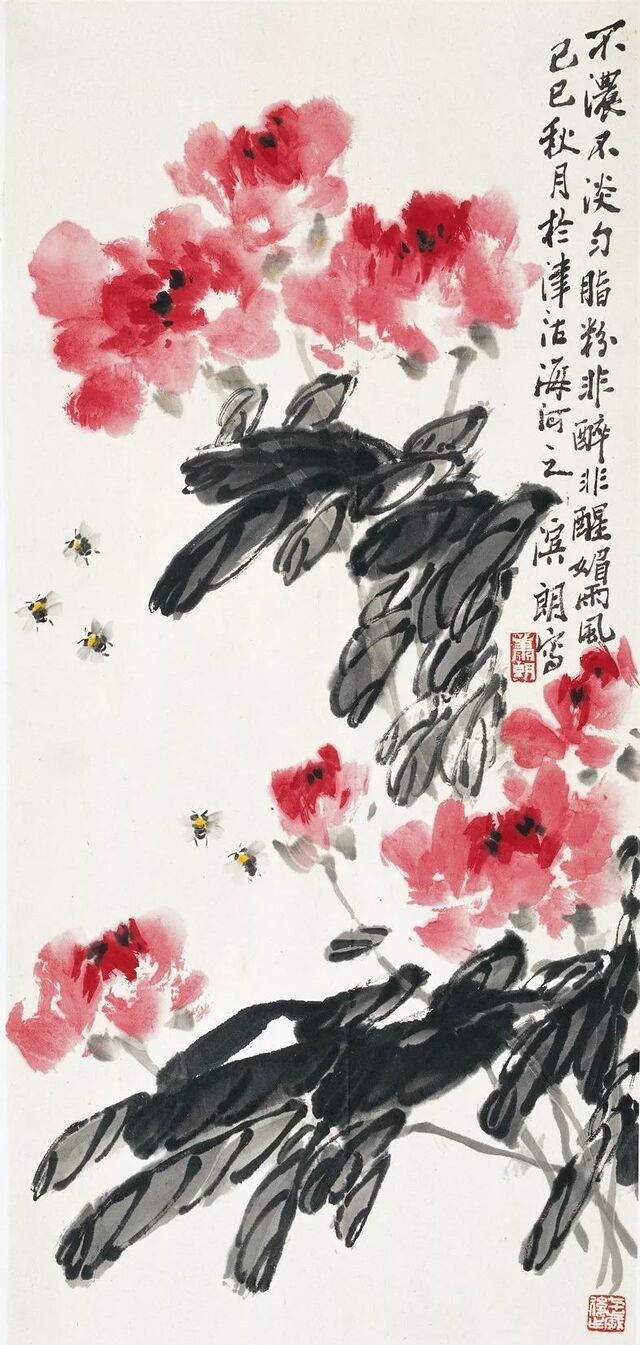 不濃不淡勻脂粉非醉非醒媚雨風
己巳秋月於津沽海河之濱朗寫
蕭朗